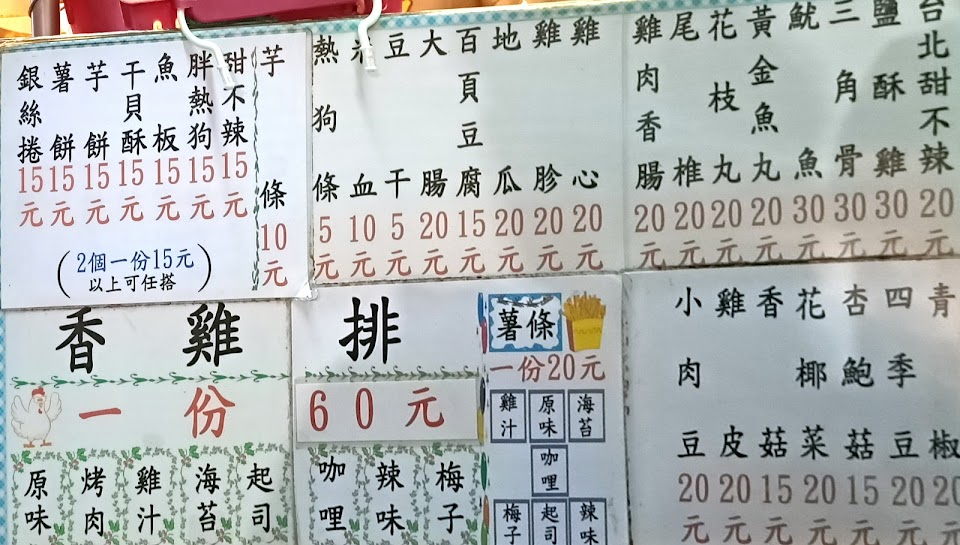 銀絲捲 15元
薯餅 15元
芋餅 15元
干貝酥 15元
魚板 15元
胖熱狗 15元
甜不辣 15元
(2個一份15元
以上可任搭)
芋條 10元
熱狗條 5元
米血 10元
豆干 5元
大腸 20元
百頁豆腐 15元
地瓜 20元
雞胗 20元
雞心 20元
雞肉香腸 20元
尾椎 20元
花枝丸 20元
黃金魚丸 20元
魷魚 30元
三角骨 30元
鹽酥雞 30元
台北甜不辣 20元
香雞排
一份60元
原味
烤肉
雞汁
海苔
起司
咖哩
辣味
梅子
薯條
一份20元
雞汁
原味
海苔
咖哩
梅子
起司
辣味
小肉豆 20元
雞皮 20元
香菇 15元
花椰菜 20元
杏鮑菇 15元
四季豆 20元
青椒 20元